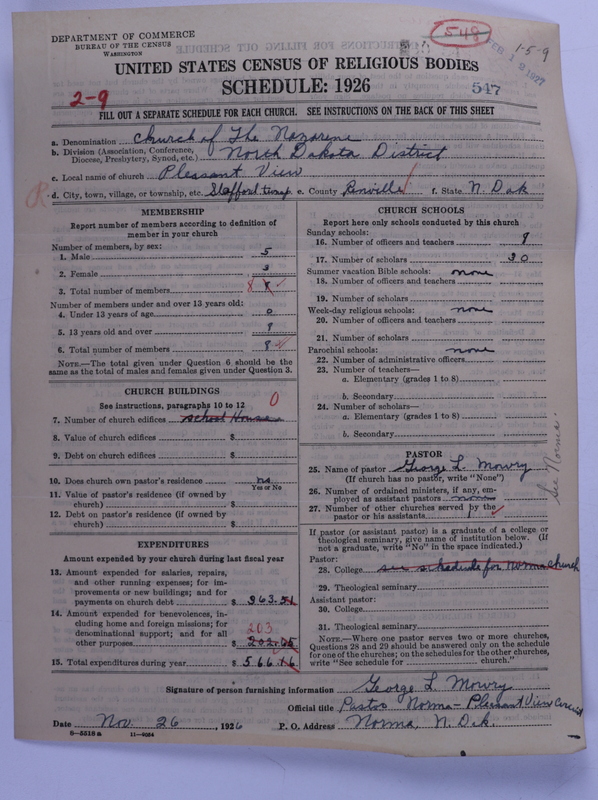 DEPARTMENT OF COMMERCE
BUREAU OF THE CENSUS
WASHINGTON
548
FEB 12 1927
1-5-9
UNITED STATES CENSUS OF RELIGIOUS BODIES
SCHEDULE: 1926
547
2-9
FILL OUT A SEPARATE SCHEDULE FOR EACH CHURCH. SEE INSTRUCTIONS ON THE BACK OF THIS SHEET
a. Denomination Church of The Nazarene
b. Division (Association, Conference, Diocese, Presbytery, Synod, etc.) North Dakota District
c. Local name of church Pleasant View
d. City, town, village, or township, etc. Stafford twnp e. County Renville f. State N. Dak
MEMBERSHIP
Report number of members according to definition of
member in your church
Number of members, by sex:
1. Male 5
2. Female 3
3. Total number of members 8
Number of members under and over 13 years old:
4. Under 13 years of age 0
5. 13 years old and over 8
6. Total number of members 8
NOTE.—The total given under Question 6 should be the
same as the total of males and females given under Question 3.
CHURCH BUILDINGS
See instructions, paragraphs 10 to 12
7. Number of church edifices School House 0
8. Value of church edifices $
9. Debt on church edifices $
10. Does church own pastor's residence? no
Yes or No
11. Value of pastor's residence (if owned by
church) $
12. Debt on pastor's residence (if owned by
church) $
EXPENDITURES
Amount expended by your church during last fiscal year
13. Amount expended for salaries, repairs,
and other running expenses; for im-
provements or new buildings; and for
payments on church debt $ 363.51
14. Amount expended for benevolences, in-
cluding home and foreign missions; for
denominational support; and for all
203
other purposes $ 202.65
15. Total expenditures during year $ 566.16
CHURCH SCHOOLS
Report here only schools conducted by this church
Sunday schools:
16. Number of officers and teachers 8
17. Number of scholars 30
Summer vacation Bible schools: none
18. Number of officers and teachers
19. Number of scholars
Week-day religious schools: none
20. Number of officers and teachers
21. Number of scholars
Parochial schools: none
22. Number of administrative officers
23. Number of teachers—
a. Elementary (grades 1 to 8)
b. Secondary
24. Number of scholars—
a. Elementary (grades 1 to 8)
b. Secondary
PASTOR
25. Name of pastor George L. Mowry
(If church has no pastor, write "None")
26. Number of ordained ministers, if any, em-
ployed as assistant pastors none
27. Number of other churches served by the
pastor or his assistants 1
See Norma.
If pastor (or assistant pastor) is a graduate of a college or
theological seminary, give name of institution below. (If
not a graduate, write "No" in the space indicated.)
Pastor:
28. College see schedule for Norma Church
29. Theological seminary
Assistant pastor:
30. College
31. Theological seminary
NOTE.—Where one pastor serves two or more churches,
Questions 28 and 29 should be answered only on the schedule
for one of the churches; on the schedules for the other churches,
write "See schedule for church."
Signature of person furnishing information George L. Mowry
Official title Pastor Norma - Pleasant View Circuit
Date Nov. 26, 1926 P. O. Address Norma, N. Dak.
8-5518a 11-9084